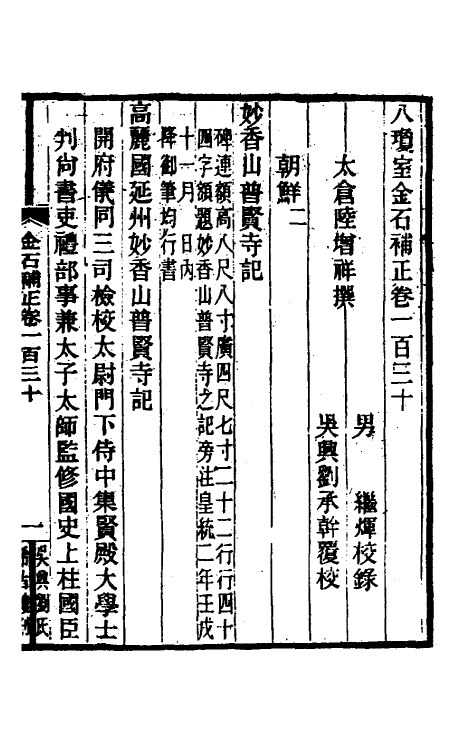 八瓊室金石補正卷一百三十
太倉陸增祥撰
男 繼煇校錄
吳興劉承幹覆校
朝鮮二
妙香山普賢寺記
碑連額高八尺八寸廣四尺七寸二十二行行四十
四字額題妙香山普賢寺之記旁注皇統二年壬戌
十一月 日內
降御筆均行書
高麗國延州妙香山普賢寺記
開府儀同三司檢校太尉門下侍中集賢殿大學士
判尚書吏禮部事兼太子太師監修國史上柱國臣
金石補正卷一百三十
一
吳興劉氏